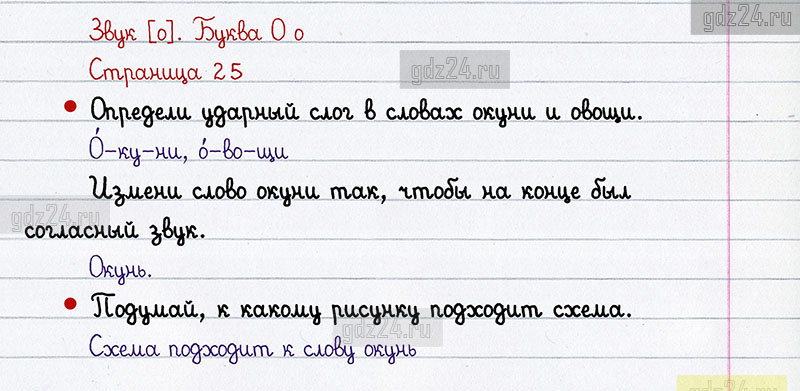 gdz24.ru
Звук [о]. Буква О о
Страница 25
gdz24.ru
• Определи ударный слог в словах окуни и овощи.
О́-ку-ни, о́-во-щи
Измени слово окуни так, чтобы на конце был
gdz24.ru
согласный звук.
Окунь.
• Подумай, к какому рисунку подходит схема.
gdz24.ru
Схема подходит к слову окунь
gdz24.ru